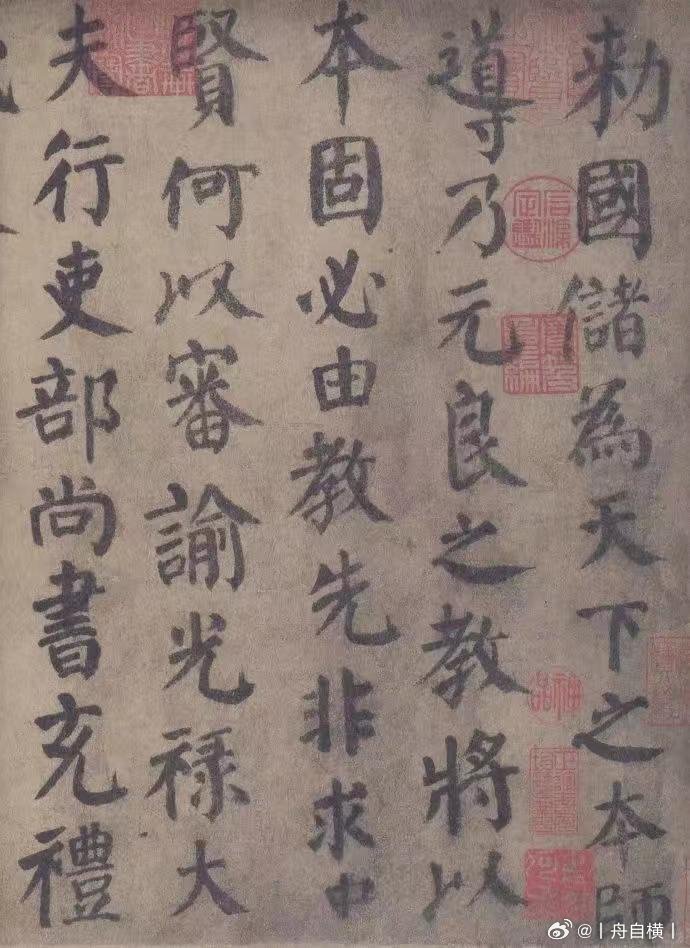 勑國儲為天下之本師
導乃元良之教將以
本固必由教先非求中
賢何以審諭光祿大
夫行吏部尚書充禮
@丨舟自横丨